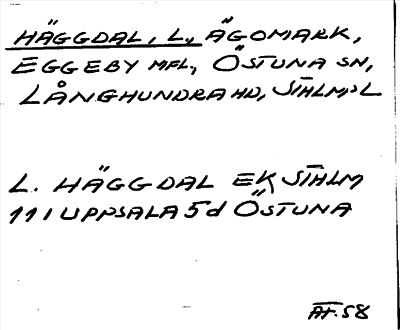 HÄGGDAL, L., ÄGOMARK,
EGGEBY MFL, ÖSTUNA SN,
LÅNGHUNDRA HD, STHLMS L
L. HÄGGDAL EK STHLM
11 I UPPSALA 5d ÖSTUNA
AF. 58